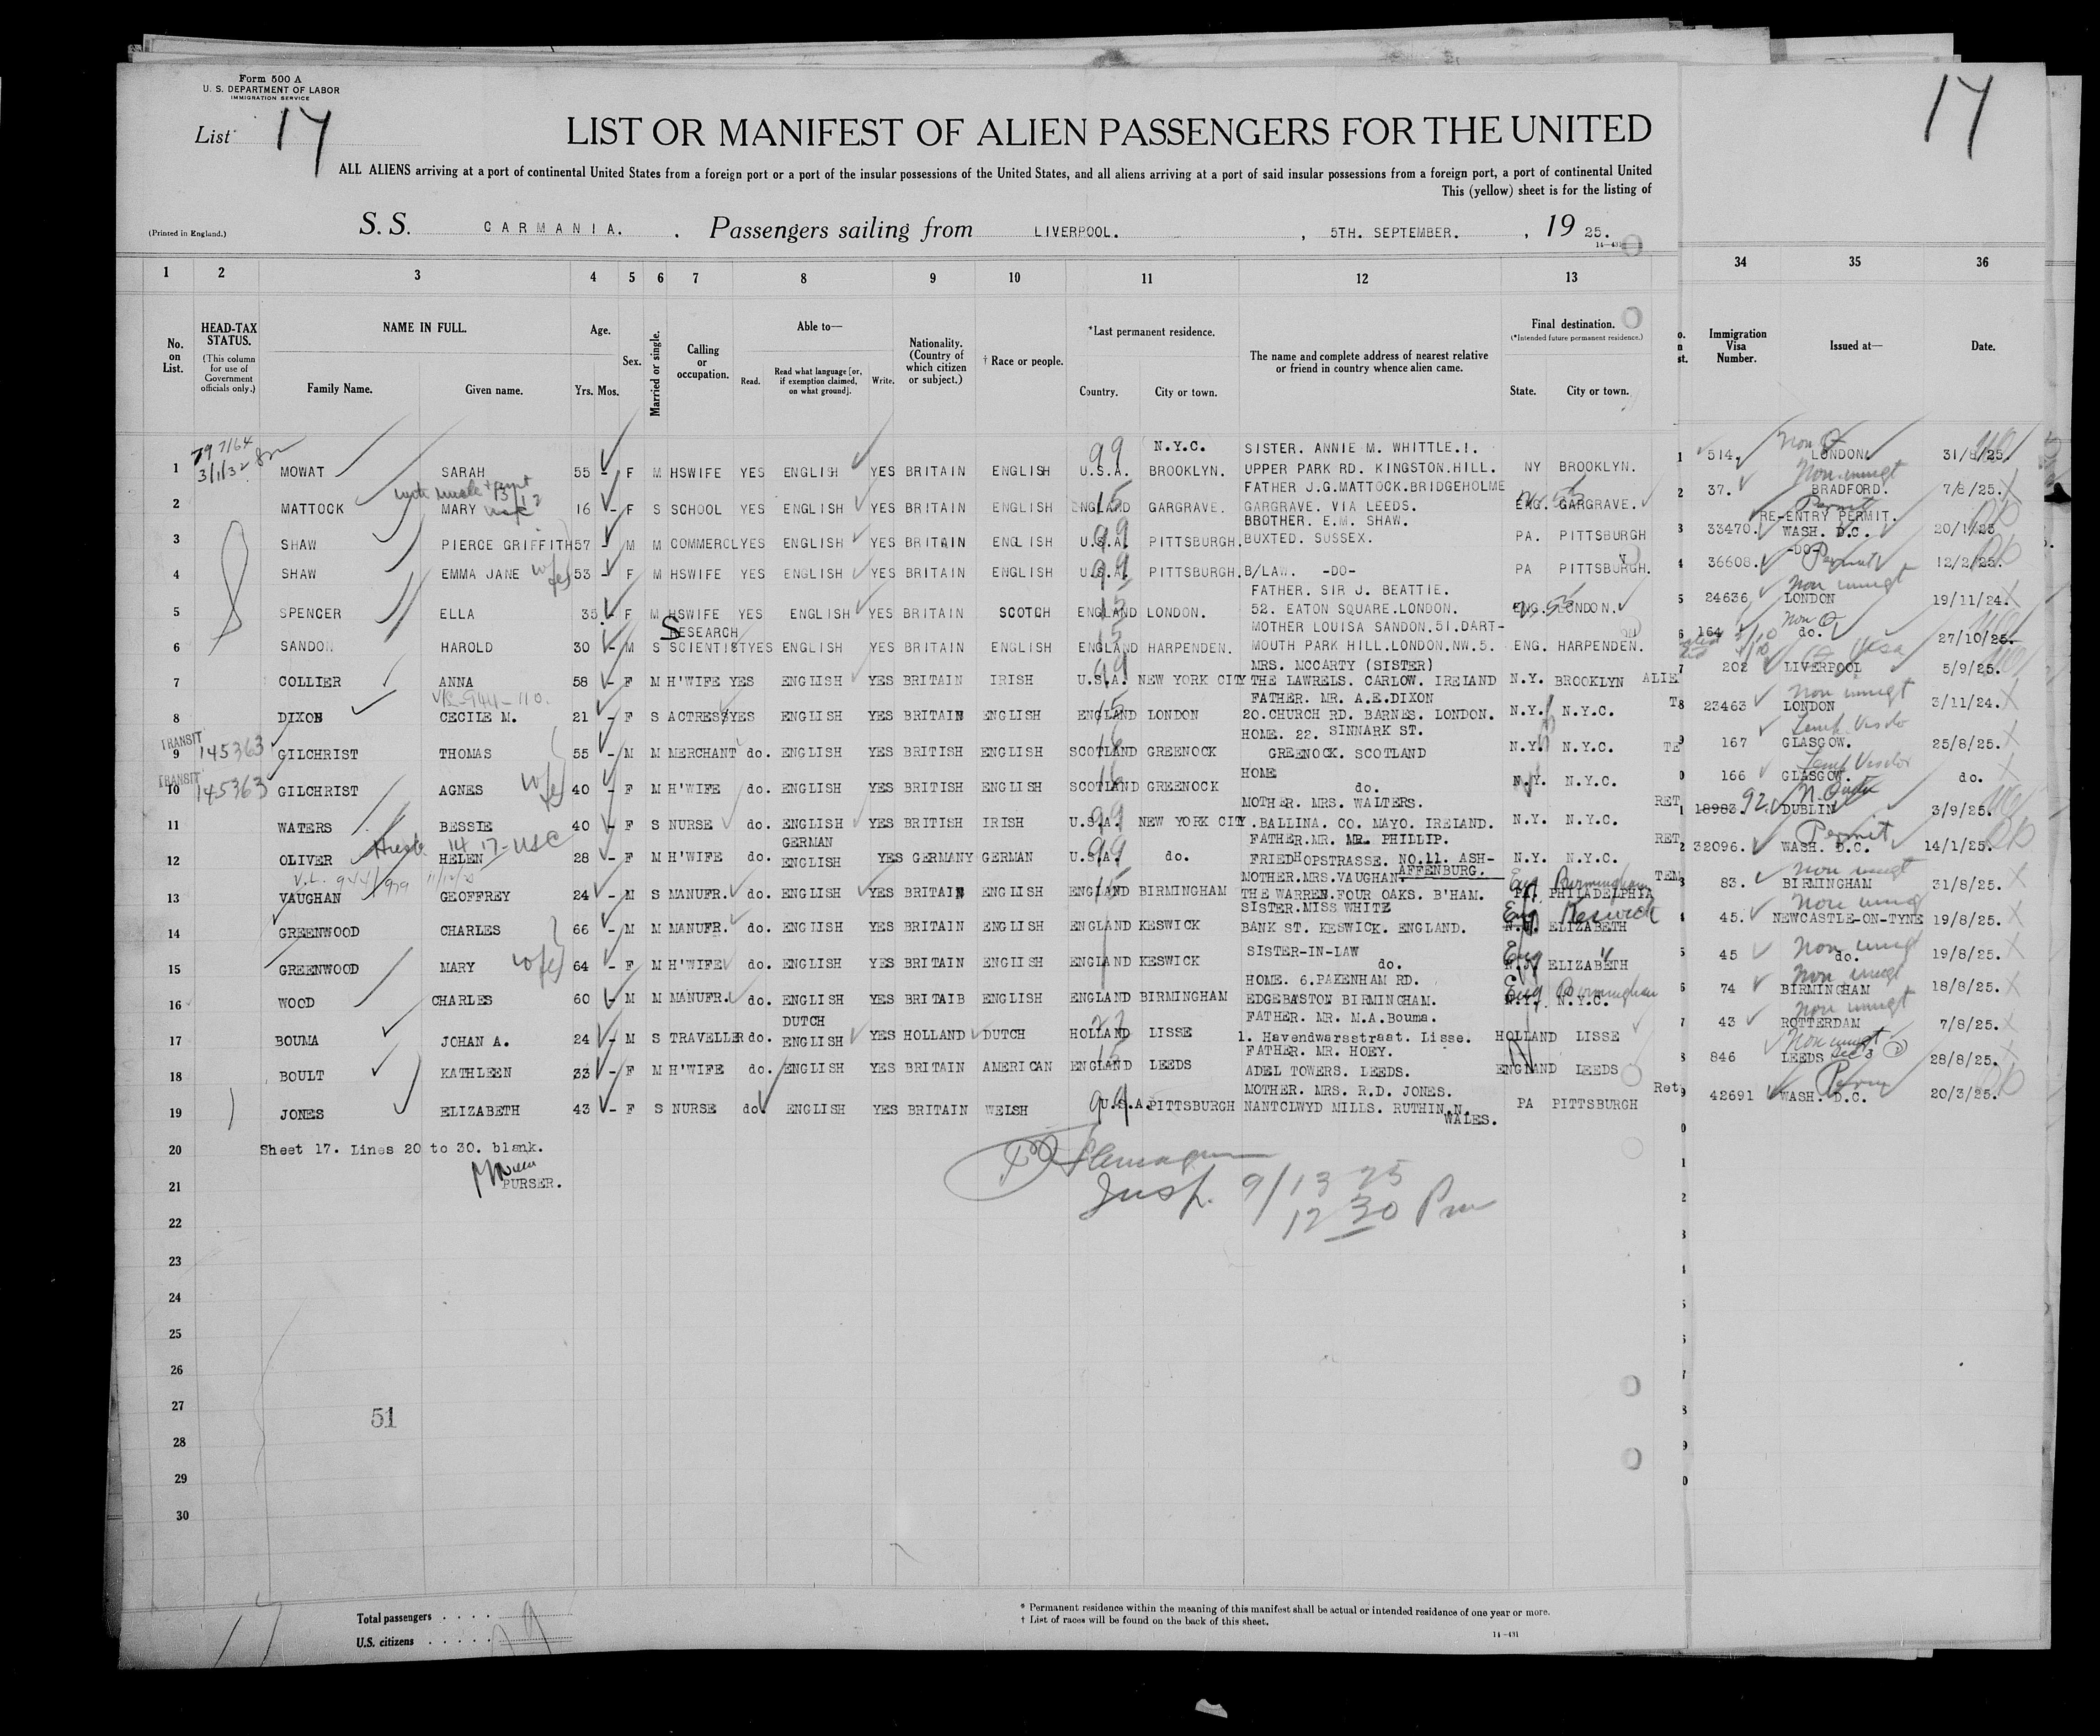 Form 500 A
U. S. DEPARTMENT OF LABOR
IMMIGRATION SERVICE
List 17
17
LIST OR MANIFEST OF ALIEN PASSENGERS FOR THE UNITED
ALL ALIENS arriving at a port of continental United States from a foreign port or a port of the insular possessions of the United States, and all aliens arriving at a port of said insular possessions from a foreign port, a port of continental United
This (yellow) sheet is for the listing of
(Printed in England.)
S. S. CARMANIA. . Passengers sailing from LIVERPOOL. , 5TH. SEPTEMBER. , 19 25.
1 2 3 4 5 6 7 8 9 10 11 12 13 34 35 36
No. on List.
HEAD-TAX STATUS.
(This column for use of Government officials only.)
NAME IN FULL.
Family Name. Given name.
Age.
Yrs. Mos.
Sex.
Married or single.
Calling or occupation.
Able to—
Read. Read what language [or, if exemption claimed, on what ground]. Write.
Nationality. (Country of which citizen or subject.)
† Race or people.
*Last permanent residence.
Country. City or town.
The name and complete address of nearest relative or friend in country whence alien came.
Final destination.
(*Intended future permanent residence.)
State. City or town.
Immigration Visa Number.
Issued at—
Date.
N.Y.C. SISTER. ANNIE M. WHITTLE.1.
1 MOWAT SARAH 55 - F M HSWIFE YES ENGLISH YES BRITAIN ENGLISH U.S.A. BROOKLYN. UPPER PARK RD. KINGSTON.HILL. NY BROOKLYN. 514. LONDON. 31/8/25.
FATHER J.G.MATTOCK.BRIDGEHOLME
2 MATTOCK MARY 16 - F S SCHOOL YES ENGLISH YES BRITAIN ENGLISH ENGLAND GARGRAVE. GARGRAVE. VIA LEEDS. ENG. GARGRAVE. 37. BRADFORD. 7/8/25.
BROTHER. E.M. SHAW. RE-ENTRY PERMIT.
3 SHAW PIERCE GRIFFITH 57 - M M COMMERCL YES ENGLISH YES BRITAIN ENGLISH U.S.A. PITTSBURGH. BUXTED. SUSSEX. PA. PITTSBURGH 33470. WASH. D.C. 20/1/25
4 SHAW EMMA JANE 53 - F M HSWIFE YES ENGLISH YES BRITAIN ENGLISH U.S.A. PITTSBURGH. B/LAW. -DO- PA PITTSBURGH. 36608. -DO- Permit 12/2/25.
FATHER. SIR J. BEATTIE. non immgt
5 SPENCER ELLA 35 - F M HSWIFE YES ENGLISH YES BRITAIN SCOTCH ENGLAND LONDON. 52. EATON SQUARE.LONDON. ENG. LONDON. 24636 LONDON 19/11/24.
RESEARCH MOTHER LOUISA SANDON.51.DART-
6 SANDON HAROLD 30 - M S SCIENTIST YES ENGLISH YES BRITAIN ENGLISH ENGLAND HARPENDEN. MOUTH PARK HILL.LONDON.NW.5. ENG. HARPENDEN. 164 do. 27/10/25.
MRS. MCCARTY (SISTER)
7 COLLIER ANNA 58 - F M H'WIFE YES ENGLISH YES BRITAIN IRISH U.S.A. NEW YORK CITY THE LAWRELS. CARLOW. IRELAND N.Y. BROOKLYN ALIE 202 LIVERPOOL 5/9/25.
FATHER. MR. A.E.DIXON non immgt
8 DIXON CECILE M. 21 - F S ACTRESS YES ENGLISH YES BRITAIN ENGLISH ENGLAND LONDON 20.CHURCH RD. BARNES. LONDON. N.Y. N.Y.C. 23463 LONDON 3/11/24.
HOME. 22. SINNARK ST.
TRANSIT 145363
9 GILCHRIST THOMAS 55 - M M MERCHANT do. ENGLISH YES BRITISH ENGLISH SCOTLAND GREENOCK GREENOCK. SCOTLAND N.Y. N.Y.C. TE 167 GLASGOW. 25/8/25.
TRANSIT 145363 HOME
10 GILCHRIST AGNES 40 - F M H'WIFE do. ENGLISH YES BRITISH ENGLISH SCOTLAND GREENOCK do. N.Y. N.Y.C. 166 GLASGOW. do.
MOTHER. MRS. WALTERS.
11 WATERS BESSIE 40 - F S NURSE do. ENGLISH YES BRITISH IRISH U.S.A. NEW YORK CITY .BALLINA. CO. MAYO. IRELAND. N.Y. N.Y.C. RET 18983. 92. DUBLIN 3/9/25.
GERMAN FATHER.MR. MR. PHILLIP. Permit
12 OLIVER HELEN 28 - F M H'WIFE do. ENGLISH YES GERMANY GERMAN U.S.A. do. FRIEDHOPSTRASSE. NO.11. ASH-AFFENBURG. N.Y. N.Y.C. RET 32096. WASH. D.C. 14/1/25.
MOTHER.MRS.VAUGHAN. Eng Birmingham non immgt
13 VAUGHAN GEOFFREY 24 - M S MANUFR. do. ENGLISH YES BRITAIN ENGLISH ENGLAND BIRMINGHAM THE WARREN.FOUR OAKS. B'HAM. PA. PHILADELPHIA TEM 83. BIRMINGHAM 31/8/25.
SISTER.MISS WHITE Eng Keswick
14 GREENWOOD CHARLES 66 - M M MANUFR. do. ENGLISH YES BRITAIN ENGLISH ENGLAND KESWICK BANK ST. KESWICK. ENGLAND. N.J. ELIZABETH 45. NEWCASTLE-ON-TYNE 19/8/25.
SISTER-IN-LAW Eng " non immgt
15 GREENWOOD MARY 64 - F M H'WIFE do. ENGLISH YES BRITAIN ENGLISH ENGLAND KESWICK do. N.J. ELIZABETH 45 do. 19/8/25.
HOME. 6.PAKENHAM RD. Eng Birmingham non immgt
16 WOOD CHARLES 60 - M M MANUFR. do. ENGLISH YES BRITAIB ENGLISH ENGLAND BIRMINGHAM EDGEBASTON BIRMINGHAM. N.Y. N.Y.C. 74 BIRMINGHAM 18/8/25.
DUTCH FATHER. MR. M.A.Bouma. non immgt
17 BOUMA JOHAN A. 24 - M S TRAVELLER do. ENGLISH YES HOLLAND DUTCH HOLLAND LISSE 1. Havendwarsstraat. Lisse. HOLLAND LISSE 43 ROTTERDAM 7/8/25.
FATHER. MR. HOEY. non immgt
18 BOULT KATHLEEN 33 - F M H'WIFE do. ENGLISH YES BRITAIN AMERICAN ENGLAND LEEDS ADEL TOWERS. LEEDS. ENGLAND LEEDS 846 LEEDS 28/8/25.
MOTHER. MRS. R.D. JONES.
19 JONES ELIZABETH 43 - F S NURSE do. ENGLISH YES BRITAIN WELSH U.S.A. PITTSBURGH NANTCLWYD MILLS. RUTHIN.N. WALES. PA PITTSBURGH Ret 42691 WASH. D.C. 20/3/25.
20 Sheet 17. Lines 20 to 30. blank.
21 PURSER.
Insp. 9/13 25
12 30 Pm
22
23
24
25
26
27
51
28
29
30
Total passengers . . . .
U.S. citizens . . . . .
* Permanent residence within the meaning of this manifest shall be actual or intended residence of one year or more.
† List of races will be found on the back of this sheet.
14-431